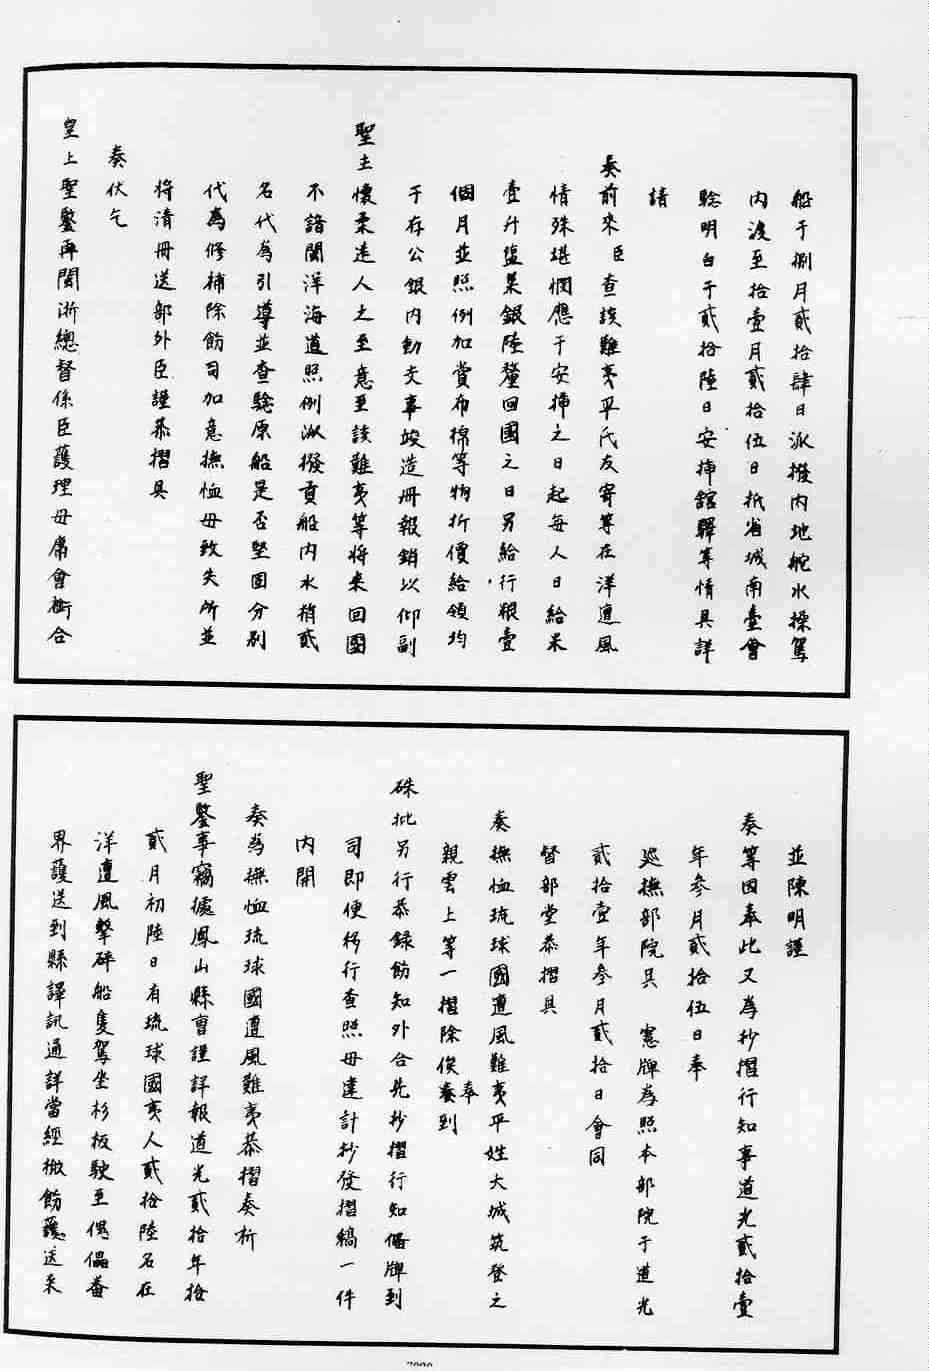 船于捌月貳拾肆日派撥内地舵水操駕
内渡至拾壹月貳拾伍日抵省城南臺會
騐明白于貳拾陸日安揷舘驛等情具詳
請
奏前來臣查該難夷平氏友寄等在洋遭風
情殊堪憫應于安揷之日起每人日給米
壹升塩菜銀陸釐回國之日另給行粮壹
個月並照例加賞布棉等物折價給領均
于存公銀内動支事竣造冊報銷以仰副
聖主懷柔遠人之至意至該難夷等將來回國
不諳閩洋海道照例派撥貢船内水梢貳
名代為引導並查騐原船是否堅固分别
代為修補除飭司加意撫恤毋致失所並
將清冊送部外臣謹恭摺具
奏伏乞
皇上聖鑒再閩浙總督係臣護理毋庸會銜合
並陳明謹
奏等因奉此又為抄摺行知事道光貳拾壹
年參月貳拾伍日奉
廵撫部院具　憲牌為照本部院于道光
貳拾壹年參月貳拾日會同
督部堂恭摺具
奏撫恤琉球國遭風難夷平姓大城筑登之
親雲上等一摺除俟奏奉到
硃批另行恭録飭知外合先抄摺行知備牌到
司即便移行查照毋違計抄發摺稿一件
内開
奏為撫恤琉球國遭風難夷恭摺奏祈
聖鑒事竊據鳳山縣曹謹詳報道光貳拾年拾
貳月初陸日有琉球國夷人貳拾陸名在
洋遭風擊碎船隻駕坐杉板駛至傀儡畨
界護送到縣譯訊通詳當經檄飭護送來